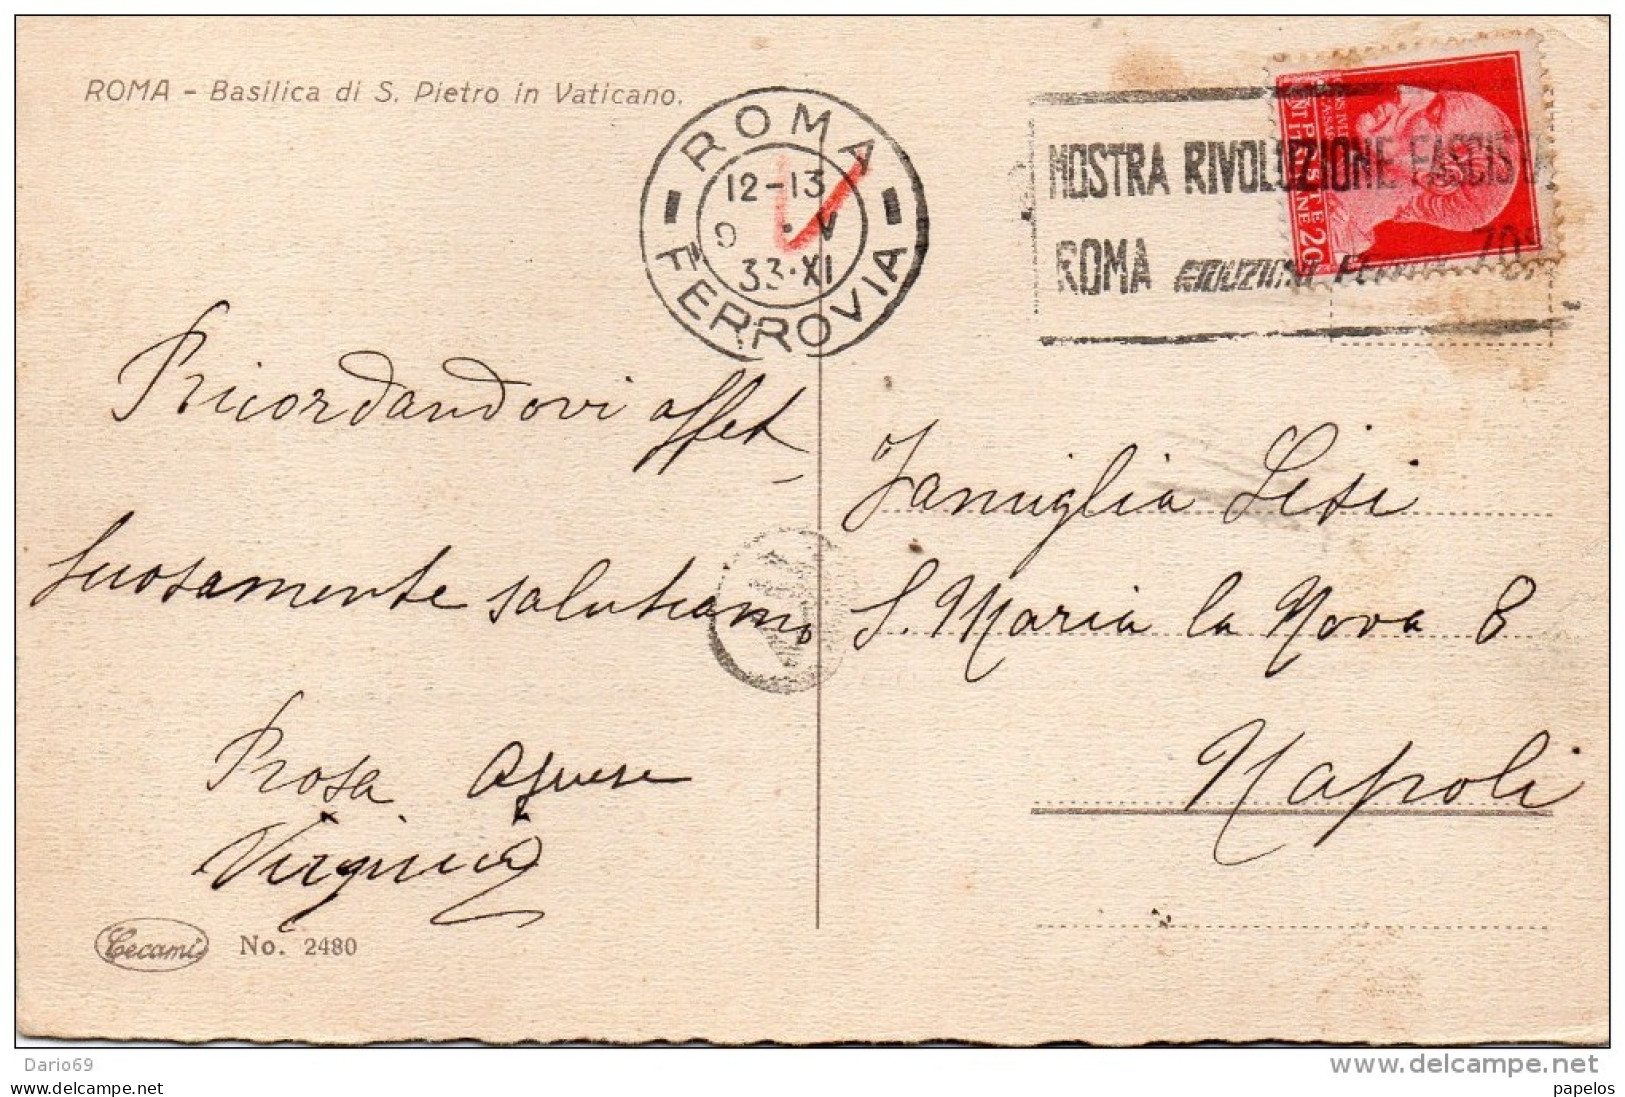 ROMA - Basilica di S. Pietro in Vaticano.
ROMA
12-13
9 · V
33·XI
FERROVIA
MOSTRA RIVOLUZIONE FASCISTA
ROMA RIDUZIONI FERROV. 70%
CENT 20
POSTE
ITALIANE
Ricordandovi affet
tuosamente salutiamo
Rosa
Virginia
Famiglia Sesi
S. Maria la Nova 8
Napoli
Cecami No. 2480
Dario69
delcampe.net
papelos